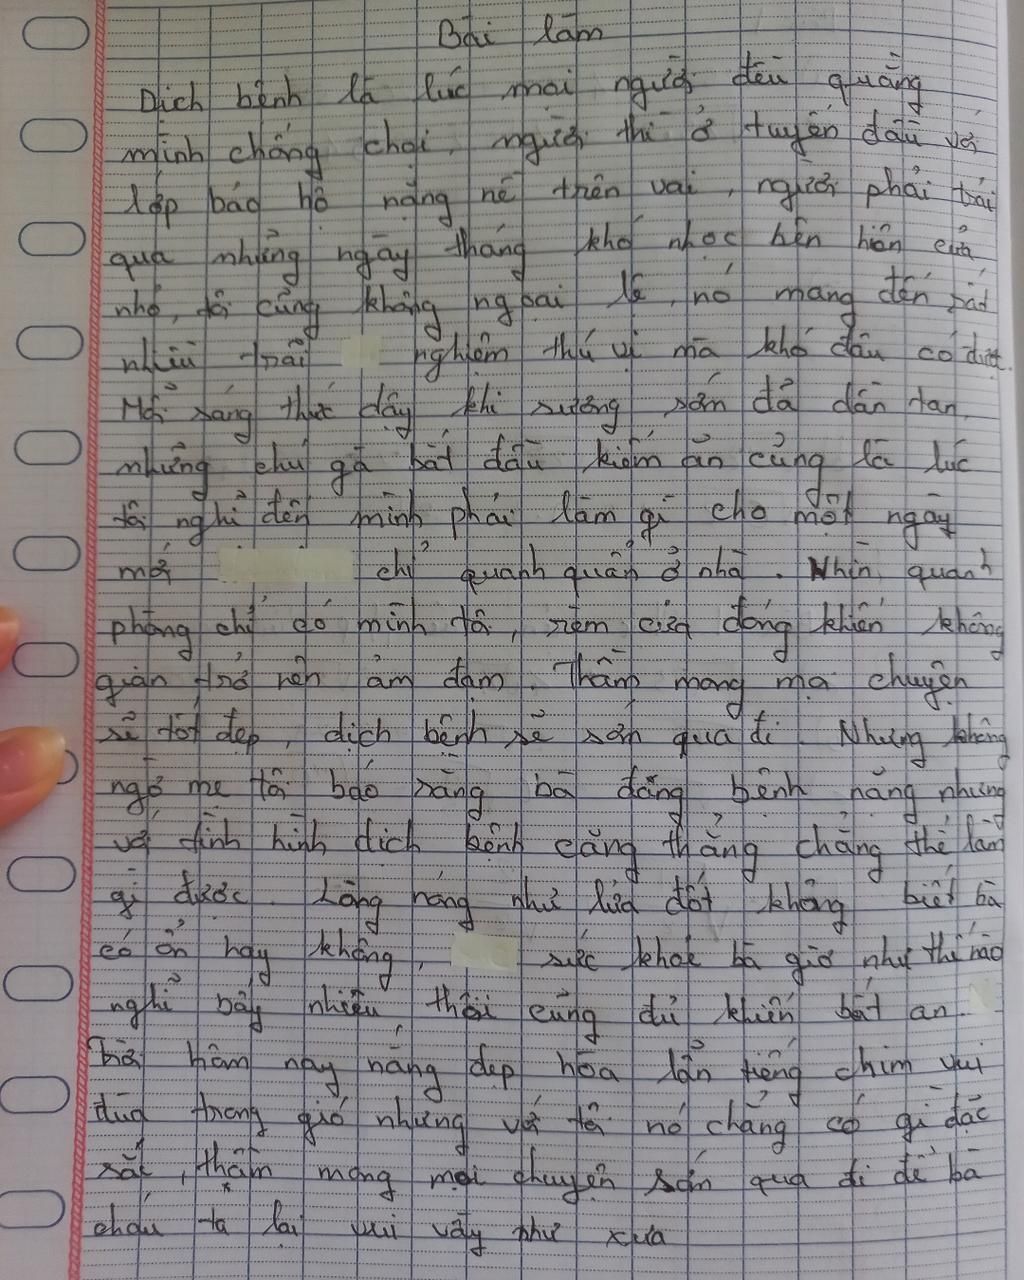 Bài làm
Dịch bệnh là lúc mọi người đều quằng
mình chống chọi, người thì ở tuyến đầu với
lớp bảo hộ nặng nề trên vai, người phải trải
qua những ngày tháng khó nhọc bên hiên cửa
nhỏ, tôi cũng không ngoại lệ, nó mang đến rất
nhiều trải nghiệm thú vị mà khó đâu có được.
Mỗi sáng thức dậy khi sương sớm đã dần tan,
những chú gà bắt đầu kiếm ăn cũng là lúc
tôi nghĩ đến mình phải làm gì cho một ngày
mới chỉ quanh quẩn ở nhà. Nhìn quanh
phòng chỉ có mình tôi, rèm cửa đóng khiến không
gian trở nên ảm đạm. Thầm mong mọi chuyện
sẽ tốt đẹp, dịch bệnh sẽ sớm qua đi. Nhưng không
ngờ mẹ tôi bảo rằng bà đang bệnh nặng nhưng
với tình hình dịch bệnh căng thẳng chẳng thể làm
gì được. Lòng nóng như lửa đốt không biết bà
có ổn hay không, sức khoẻ bà giờ như thế nào
nghĩ bấy nhiêu thôi cũng đủ khiến bất an.
Trời hôm nay nắng đẹp hòa lẫn tiếng chim vui
đùa trong gió nhưng với tôi nó chẳng có gì đặc
sắc, thầm mong mọi chuyện sớm qua đi để bà
cháu ta lại vui vầy như xưa